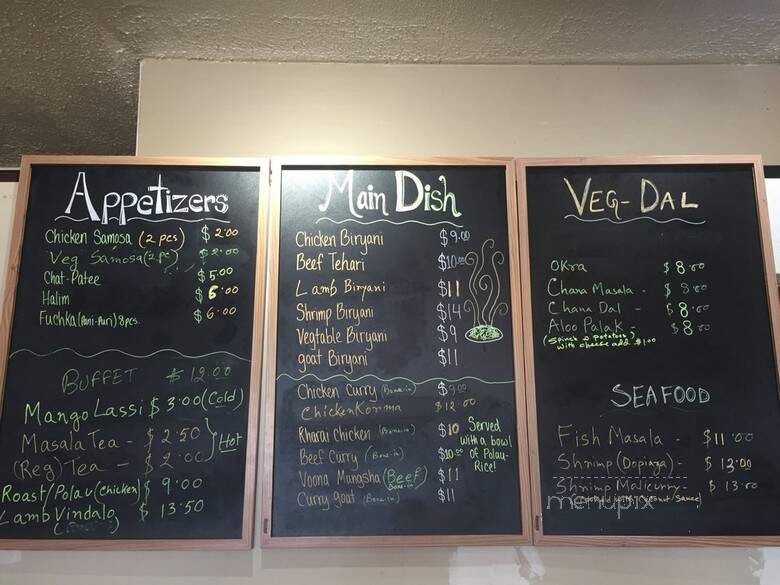 Appetizers
Chicken Samosa (2 pcs) $2.00
Veg Samosa (2 pc) $2.00
Chat-Patee $5.00
Halim $6.00
Fuchka (Pani-Puri) 8 pcs. $6.00
BUFFET $12.00
Mango Lassi $3.00 (Cold)
Masala Tea - $2.50
Hot
(Reg) Tea - $2.00
Roast/Polau (Chicken) $9.00
Lamb Vindalo $13.50
Main Dish
Chicken Biryani $9.00
Beef Tehari $10.00
Lamb Biryani $11
Shrimp Biryani $14
Vegtable Biryani $9
goat Biryani $11
Chicken Curry (Bone-in) $9.00
Chicken Korma $12.00
Kharai Chicken (Bone-in) $10
Beef Curry (Bone-in) $10.00
Voona Mungsha (Beef) $11
Bone-in
Curry goat (Bone-in) $11
Served
with a bowl
of Polau-
Rice!
VEG-DAL
Okra $8.00
Chana Masala - $8.00
Chana Dal - $8.00
Aloo Palak - $8.00
(Spinch n potatoes
with cheese add $1.00
SEAFOOD
Fish Masala - $11.00
Shrimp (Dopiaza) - $12.00
Shrimp Malicurry - $13.00
(Coconut Sauce)
menupix